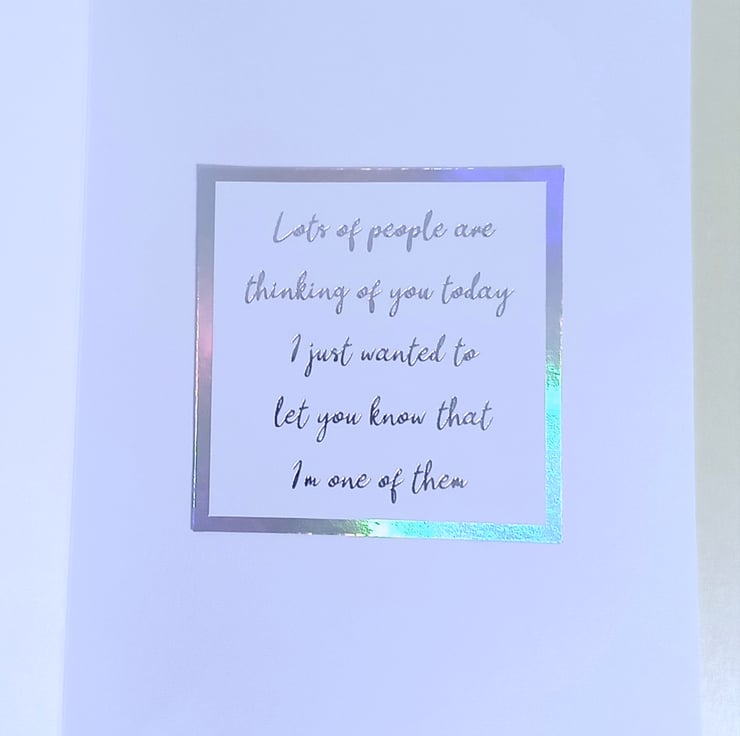 Lots of people are
thinking of you today
I just wanted to
let you know that
Im one of them